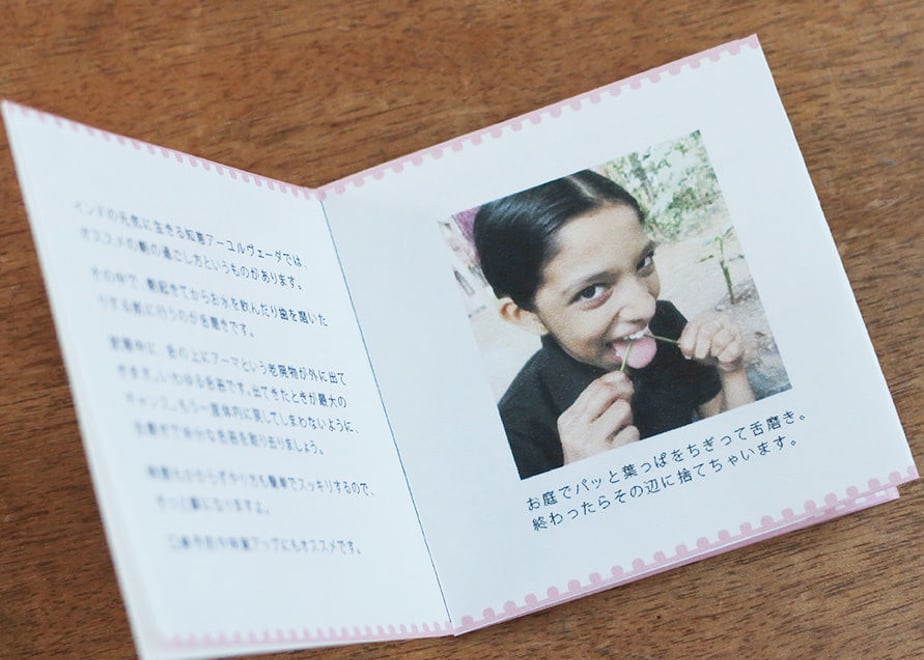 インドの元気に生きる知恵アーユルヴェーダでは、
オススメの朝の過ごし方というものがあります。
その中で、朝起きてからお水を飲んだり歯を磨いた
りする前に行うのが舌磨きです。
就寝中に、舌の上にアーマという老廃物が外に出て
きます。いわゆる舌苔です。出てきたときが最大の
チャンス。もう一度体内に戻してしまわないように、
舌磨きで余分な舌苔を取り去りましょう。
時間もかからずやり方も簡単でスッキリするので、
きっと癖になりますよ。
口臭予防や味覚アップにもオススメです。
お庭でパッと葉っぱをちぎって舌磨き。
終わったらその辺に捨てちゃいます。